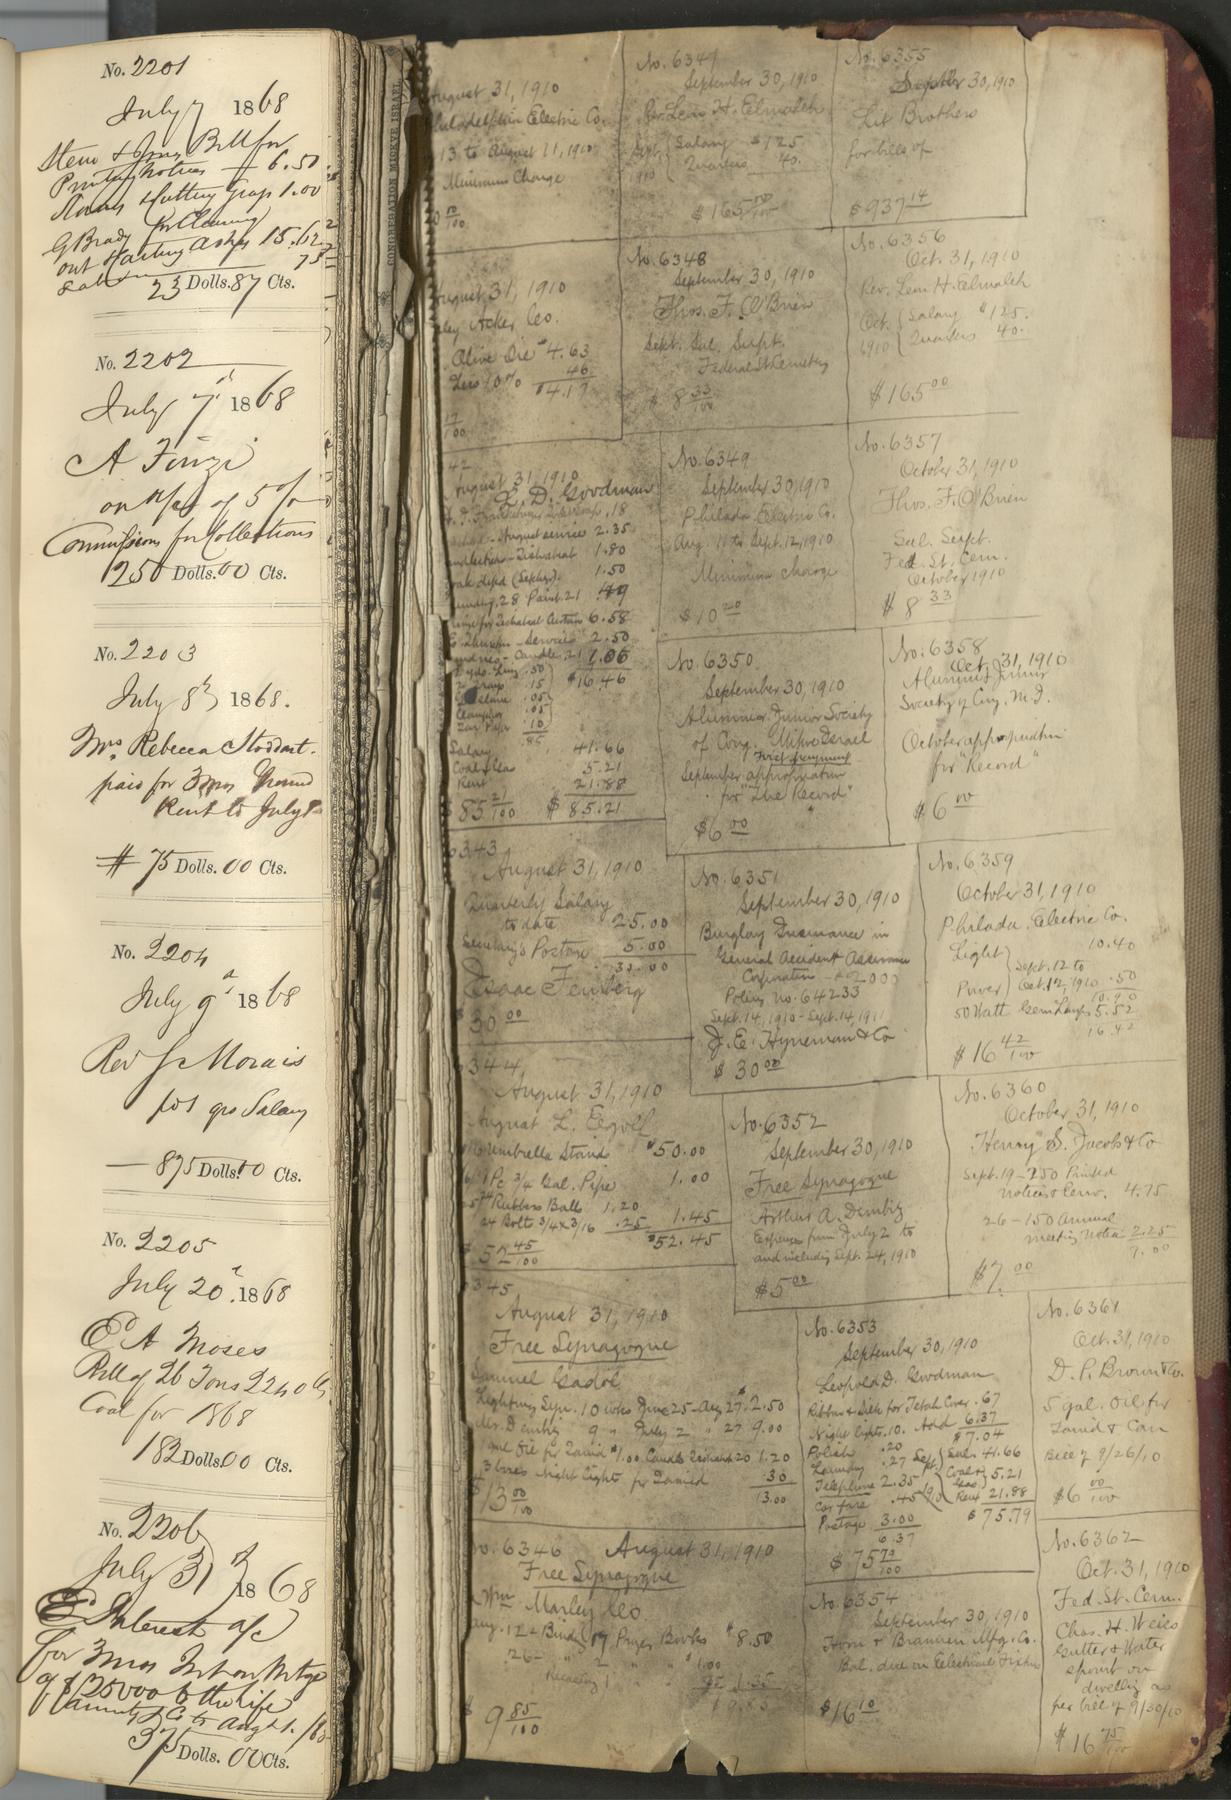 No. 2201
July 7 1868
Stern & Jones Bill for
Printing Notices — 6.50
1.00
G Brady for Cleaning
out & Hauling Ashes 15.62
75
23 Dolls. 87 Cts.
No. 2202
July 7th 1868
A Finzi
on a/c of 5 o/o
Commissions for Collections
1250 Dolls. 00 Cts.
No. 2203
July 8th 1868.
Mrs Rebecca Stoddart.
paid for 3 mos Ground
Rent to July 1
# 75 Dolls. 00 Cts.
No. 2204
July 9th 1868
Rev S Morais
for qrs Salary
— 875 Dolls. 00 Cts.
No. 2205
July 20th 1868
A Moses
Bill of 26 Tons 2240 lbs
Coal for 1868
182 Dolls. 00 Cts.
No. 2206
July 31st 1868
Interest a/c
for 3 mos Int on Mtge
of $25000 to the Life
Annuity & Co to Augt 1. /68
375 Dolls. 00 Cts.
CONGREGATION MICKVE ISRAEL
August 31, 1910
Philadelphia Electric Co.
13 to August 11, 1910
Minimum Charge
00/100
August 31, 1910
Acker Co.
Olive Oil $4.63
Less 10% 46
$4.17
17/100
42
August 31, 1910
L. D. Goodman
.18
August service 2.35
1.80
1.50
28 Paint .21 .49
6.58
Service 2.50
Candle, .21
.50
.15
.05
.05
.10
.85
$16.46
Salary 41.66
Coal & Gas 5.21
Rent 21.88
$85 21/100 $85.21
6343
August 31, 1910
Quarterly Salary
to date 25.00
Secretary's Postage 5.00
30.00
Isaac Feinberg
$30 00
344
August 31, 1910
August L. Eggolf
Umbrella Stand $50.00
1 Pc 3/4 Gal. Pipe 1.00
Rubber Balls 1.20
24 Bolts 3/4 x 3/16 .25 1.45
$52.45
$52 45/100
345
August 31, 1910
Free Synagogue
Samuel Gadol
Lighting Syn. 10 wks June 25 - Aug 27 $2.50
Mr. Dembitz 9 " July 2 " 27 9.00
gal Oil for Tamid $1.00 Candle 20 1.20
3 boxes Night Lights for Tamid .30
13.00
$13 00/100
No. 6346 August 31, 1910
Free Synagogue
Wm Marley Co.
Aug. 12 - Binding 17 Prayer Books $8.50
26 " 2 " " $1.00
1
$9 85/100
No. 6347
September 30, 1910
Rev. Leon H. Elmaleh
Sept. 1910 { Salary $125
Quarters 40.
$165 00/100
No. 6348
September 30, 1910
Thos. F. O'Brien
Sept. Sal. Supt.
Federal St Cemetery
$8 33/100
No. 6349
September 30, 1910
Philada Electric Co.
Aug. 11 to Sept. 12, 1910
Minimum charge
$10 00
No. 6350
September 30, 1910
Alumni Junior Society
of Cong. Mikve Israel
First payment
September appropriation
for "The Record"
$6 00
No. 6351
September 30, 1910
Burglary Insurance in
General Accident Assurance
Corporation — $2000
Policy no. 64233
Sept. 14, 1910 - Sept. 14, 1911
J. E. Hyneman & Co
$30 00
No. 6352
September 30, 1910
Free Synagogue
Arthur A. Dembitz
Expenses from July 2 to
and including Sept. 24, 1910
$5 00
No. 6353
September 30, 1910
Leopold D. Goodman
Ribbon & Silk for Tebah Cover .67
Night Lights .10. Add 6.37
$7.04
Polish .20
Laundry .27
Telephone 2.35
Car fare .45
Postage 3.00
6.37
Sept. 1910 { Sal. 41.66
Coal & Gas 5.21
Rent 21.88
$75.79
$75 79/100
No. 6354
September 30, 1910
Horn & Brannen Mfg. Co.
Bal. due on Electrical Fixtures
$16 10
No. 6355
September 30, 1910
Lit Brothers
for bills of
$937 14
No. 6356
Oct. 31, 1910
Rev. Leon H. Elmaleh
Oct. 1910 { Salary $125.
Quarters 40.
$165 00
No. 6357
October 31, 1910
Thos. F. O'Brien
Sal. Supt.
Fed. St. Cem.
October 1910
$8 33
No. 6358
Oct. 31, 1910
Alumni Junior
Society of Cong. M. I.
October appropriation
for "Record"
$6 00
No. 6359
October 31, 1910
Philada. Electric Co.
Light } 10.40
Sept. 12 to
Power } Oct. 12, 1910 .50
10.90
50 Watt Gem Lamps 5.52
16.42
$16 42/100
No. 6360
October 31, 1910
Henry S. Jacobs & Co
Sept. 19 - 250 Printed
notices & Env. 4.75
26 - 150 Annual
meeting notices 2.25
7.00
$7. 00
No. 6361
Oct. 31, 1910
D. P. Brown & Co.
5 gal. Oil for
Tamid & Can
Bill of 9/26/10
$6 00/100
No. 6362
Oct. 31, 1910
Fed. St. Cem.
Chas. H. Weiss
Gutter & Water
spout on
dwelling as
per bill of 9/30/10
$16 75/100